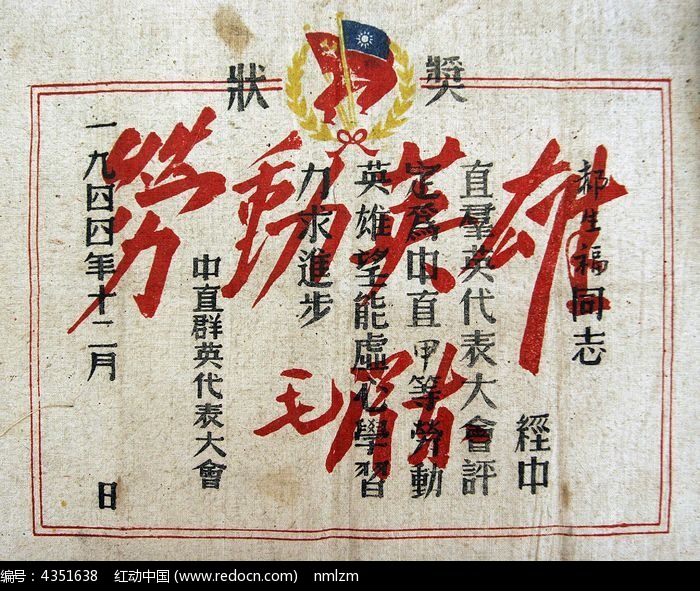 獎狀
生福同志
經中
直羣英代表大會評
定爲中直甲等勞動
英雄望能虛心學習
力求進步
中直群英代表大會
一九四四年十二月 日
勞動英雄
毛
编号：4351638 红动中国 (www.redocn.com) nmlzm